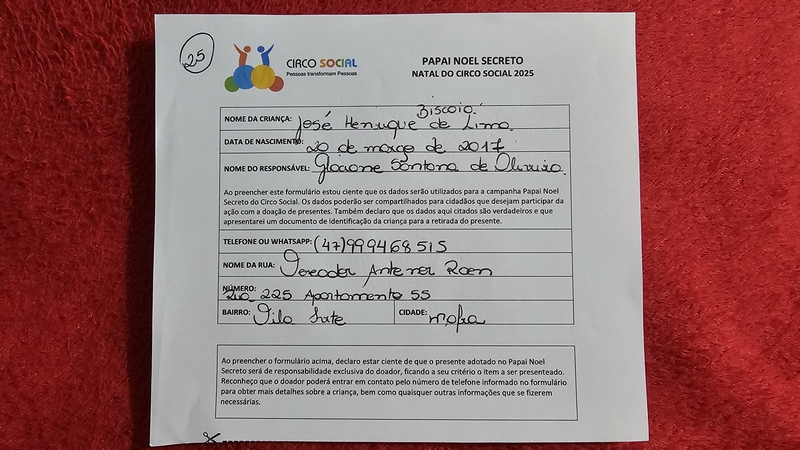 25
CIRCO SOCIAL
Pessoas transformam Pessoas
PAPAI NOEL SECRETO
NATAL DO CIRCO SOCIAL 2025
Biscoio
NOME DA CRIANÇA: José Henrique de Lima.
DATA DE NASCIMENTO: 20 de março de 2017
NOME DO RESPONSÁVEL: Glaciane Santana de Oliveira.
Ao preencher este formulário estou ciente que os dados serão utilizados para a campanha Papai Noel
Secreto do Circo Social. Os dados poderão ser compartilhados para cidadãos que desejam participar da
ação com a doação de presentes. Também declaro que os dados aqui citados são verdadeiros e que
apresentarei um documento de identificação da criança para a retirada do presente.
TELEFONE OU WHATSAPP: (47)999468515
NOME DA RUA: Vereador Antenor
NÚMERO:
Rua 225 Apartamento 55
BAIRRO: Vila CIDADE: Mafra
Ao preencher o formulário acima, declaro estar ciente de que o presente adotado no Papai Noel
Secreto será de responsabilidade exclusiva do doador, ficando a seu critério o item a ser presenteado.
Reconheço que o doador poderá entrar em contato pelo número de telefone informado no formulário
para obter mais detalhes sobre a criança, bem como quaisquer outras informações que se fizerem
necessárias.